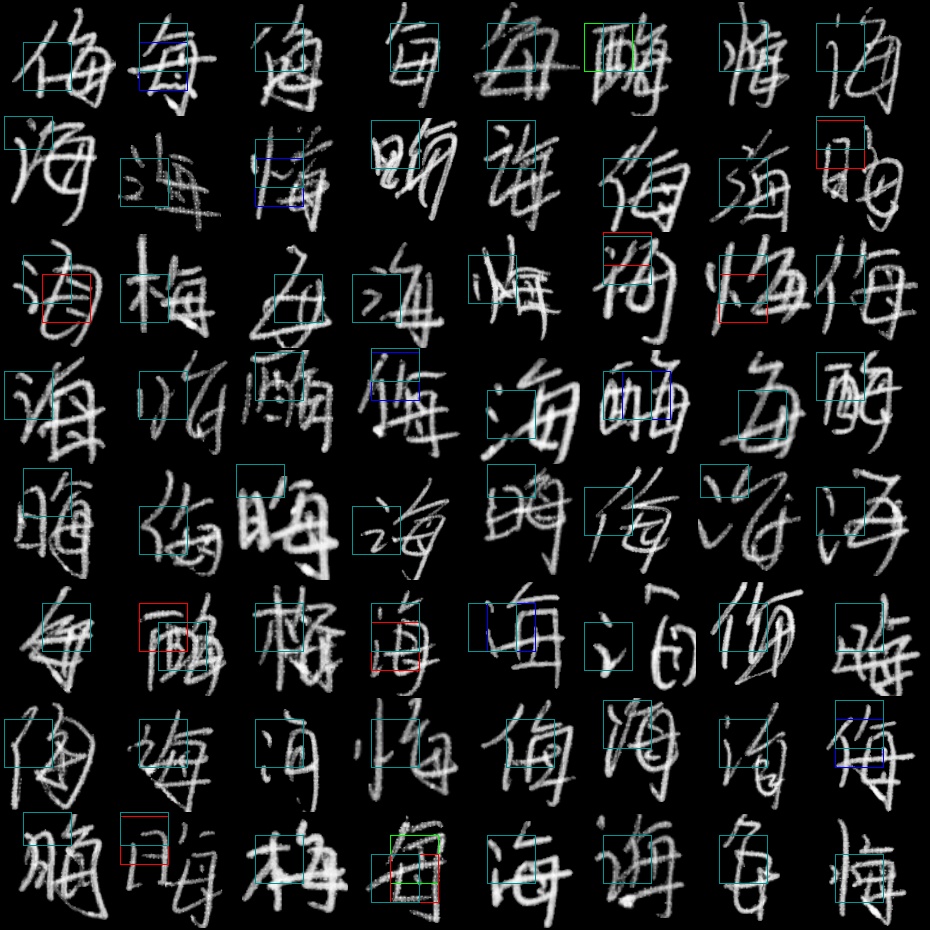 侮每侮每每酶悔海
海海悔晦诲侮海晦
海梅每海悔海悔侮
诲海酶侮海酶每酶
晦侮晦海晦侮海海
每酶梅海海海侮晦
侮海海悔侮海海侮
晦晦梅每海海每悔